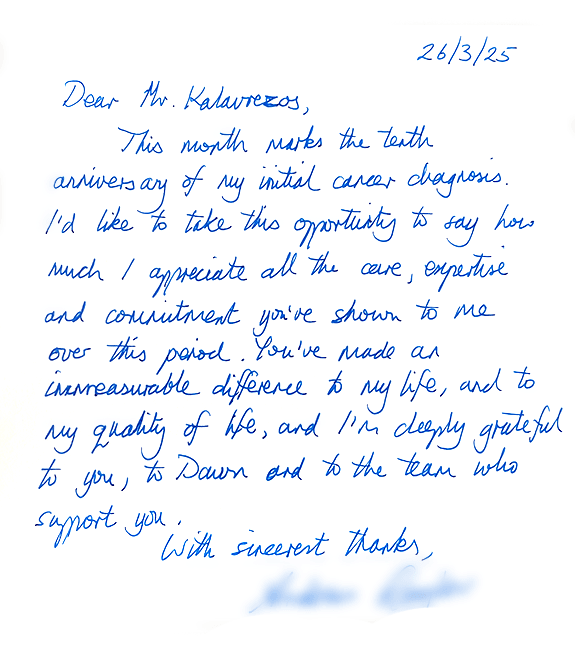 26/3/25
Dear Mr. Kalavrezos,
This month marks the tenth
anniversary of my initial cancer diagnosis.
I'd like to take this opportunity to say how
much I appreciate all the care, expertise
and commitment you've shown to me
over this period. You've made an
immeasurable difference to my life, and to
my quality of life, and I'm deeply grateful
to you, to Dawn and to the team who
support you.
With sincerest thanks,